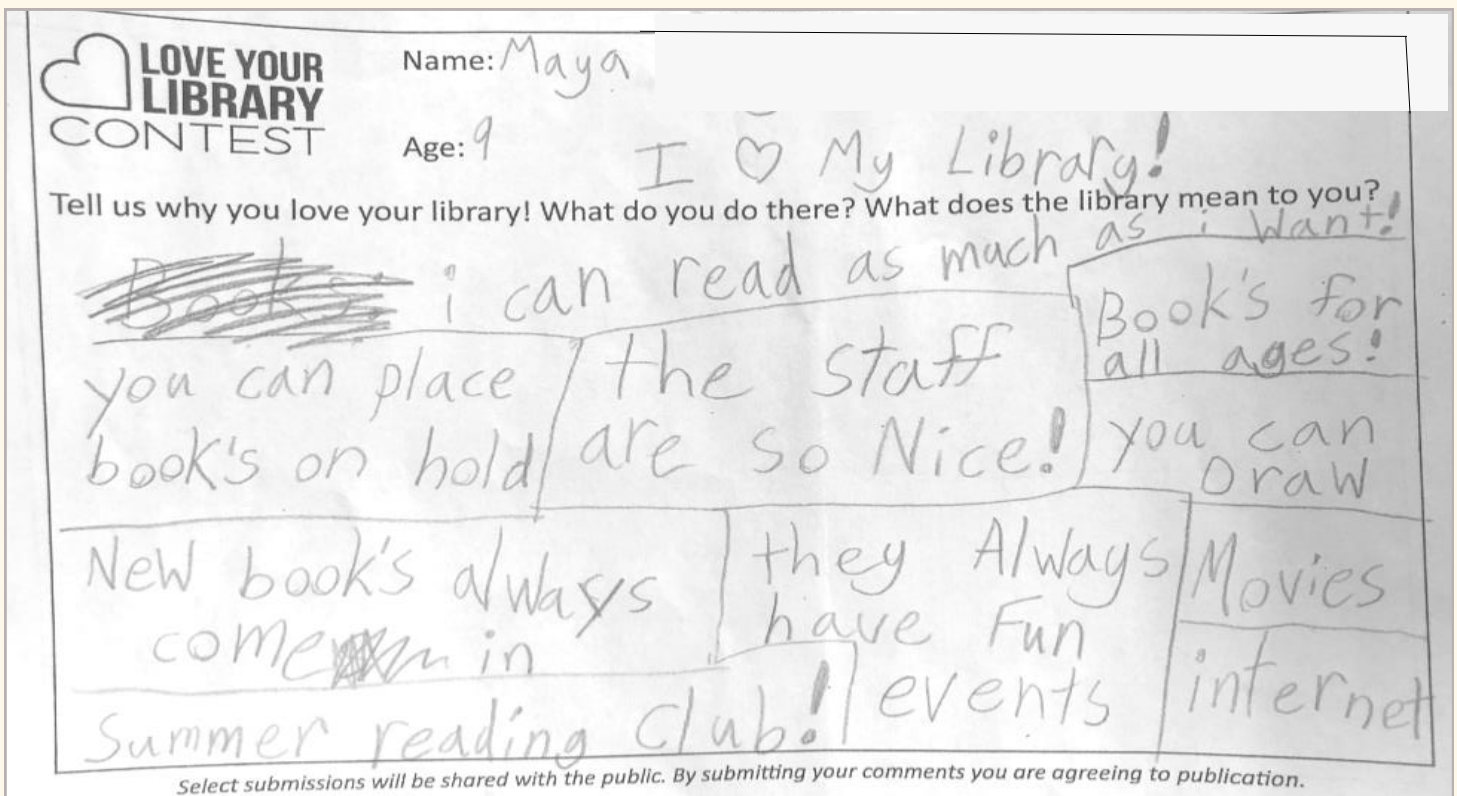 LOVE YOUR
LIBRARY
CONTEST
Name: Maya
Age: 9
I ♡ My Library!
Tell us why you love your library! What do you do there? What does the library mean to you?
Books: i can read as much as i want!
Book's for
all ages!
you can place
book's on hold
the staff
are so Nice!
you can
Draw
New book's always
come in
they Always
have Fun
events
Movies
internet
Summer reading Club!
Select submissions will be shared with the public. By submitting your comments you are agreeing to publication.